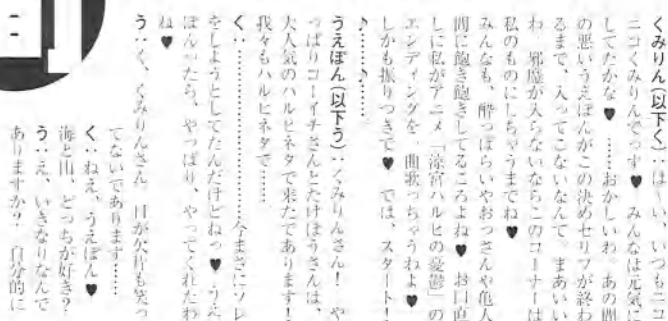 くみりん(以下く)：は い、いつもニコ
ニコくみりんでっす♥ みんなは元気に
してたかな♥ ……おかしいわ。あの間
の悪いうえぽんがこの決めセリフが終わ
るまで、入ってこないなんて。まあいい
わ 邪魔が入らないならこのコーナーは
私のものにしちゃうまでね♥
みんなも、酔っぱらいやおっさんや亀人
間に飽き飽きしてるころよね♥ お口直
しに私がアニメ「涼宮ハルヒの憂鬱」の
エンディングを 曲歌っちゃうわよ♥
しかも振りつきで♥ では、スタート！
♪……♪……
うえぽん(以下う)：くみりんさん！ や
っぱりコーイチさんとたけぽうさんは、
大人気のハルヒネタで来たであります！
我々もハルヒネタで……
く：……………………今まさにソレ
をしようとしてたんだけどねっ♥ うえ
ぽんったら、やっぱり、やってくれたわ
ね♥
う：く、くみりんさん 目が欠片も笑っ
てないであります……
く：ねえ、うえぽん♥
海と山、どっちが好き？
う：え、いきなりなんで
ありますか？ 自分的に